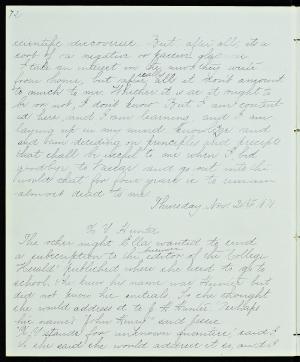 72
scientific discoveries. But, after all, it is a
sort of a negative or passive
I take an interest in the and they write
from home, but after all it don't amount
to much to me. Whether it is as it ought to
be or not, I don't know. But I am content-
ed here, and I am learning, and I am
laying up in my mind knowledge and
and am deciding on principles and precepts
that shall be useful to me when I bid
goodbye to Vassar and go out into the
world that for four years is to remain
almost dead to me.
Thursday Nov. 26th
X Y Hunter
The other night Ella wanted to send
a subscription to the editor of the College
Herald published where she used to go to
school. She knew his name was Hunter but
did not know his initials. So she thought
she would address it to J. H. Hunter. Perhaps
his name's John Hunter said Jessie.
"X Y stands for unknown quantities" said I
So she said she would address it so, and I